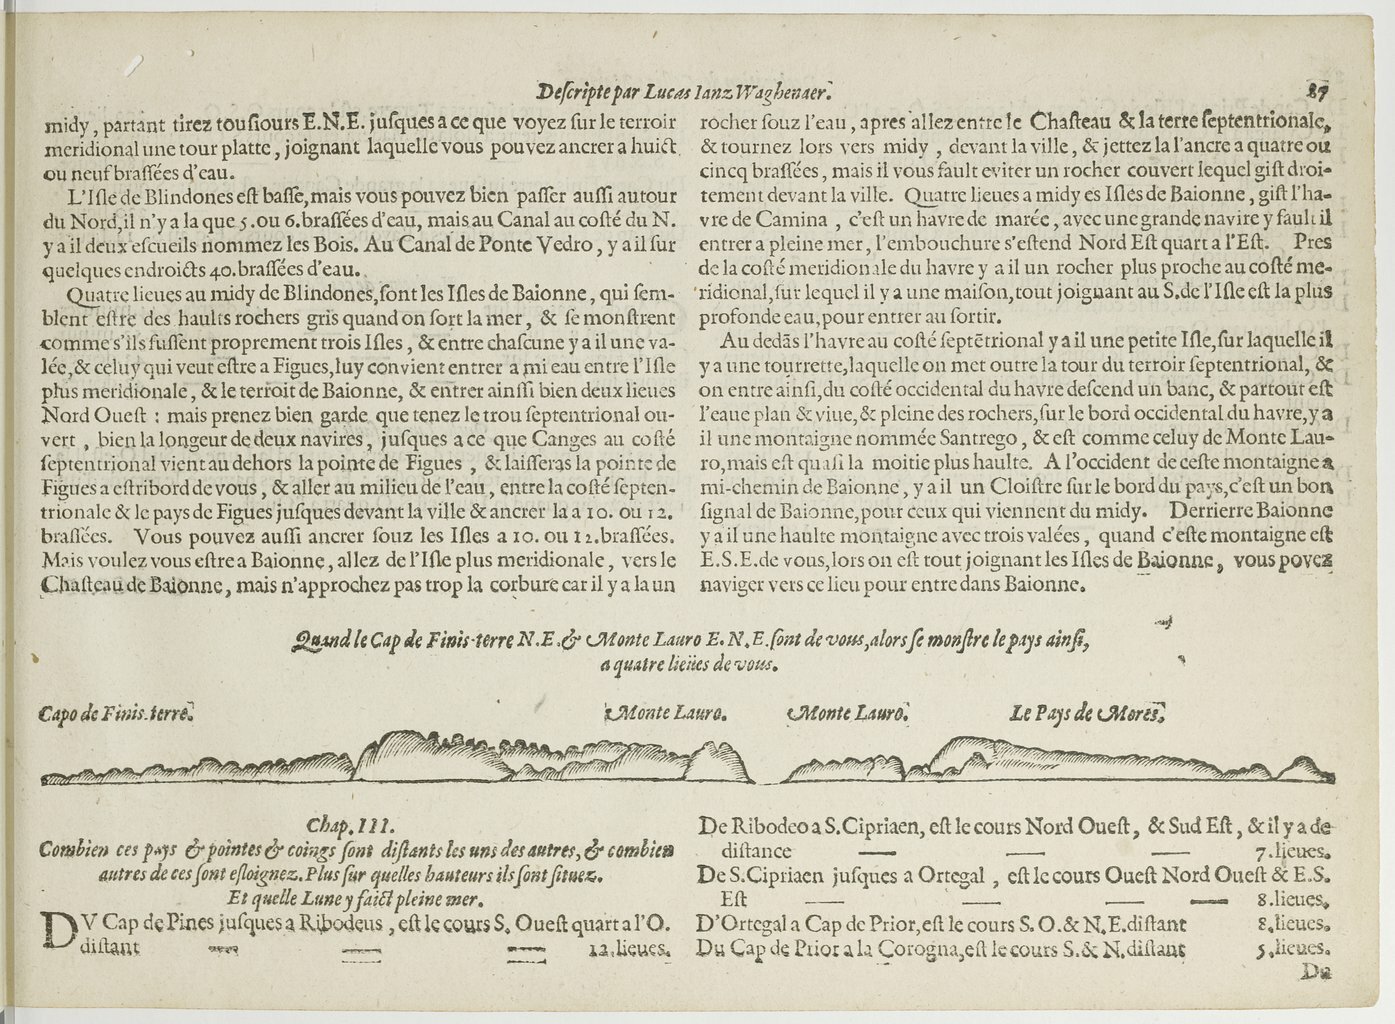 Descripte par Lucas Ianz Waghenaer. 87
midy, partant tirez tousiours E.N.E. jusques a ce que voyez sur le terroir
meridional une tour platte, joignant laquelle vous pouvez ancrer a huict
ou neuf brassées d'eau.
L'Isle de Blindones est basse, mais vous pouvez bien passer aussi autour
du Nord, il n'y a la que 5. ou 6. brassées d'eau, mais au Canal au costé du N.
y a il deux escueils nommez les Bois. Au Canal de Ponte Vedro, y a il sur
quelques endroicts 40. brassées d'eau.
Quatre lieues au midy de Blindones, sont les Isles de Baionne, qui sem-
blent estre des haults rochers gris quand on sort la mer, & se monstrent
comme s'ils fussent proprement trois Isles, & entre chascune y a il une va-
lée, & celuy qui veut estre a Figues, luy convient entrer a mi eau entre l'Isle
plus meridionale, & le terroit de Baionne, & entrer ainssi bien deux lieues
Nord Ouest : mais prenez bien garde que tenez le trou septentrional ou-
vert, bien la longeur de deux navires, jusques a ce que Canges au costé
septentrional vient au dehors la pointe de Figues, & laisseras la pointe de
Figues a estribord de vous, & aller au milieu de l'eau, entre la costé septen-
trionale & le pays de Figues jusques devant la ville & ancrer la a 10. ou 12.
brassées. Vous pouvez aussi ancrer souz les Isles a 10. ou 12. brassées.
Mais voulez vous estre a Baionne, allez de l'Isle plus meridionale, vers le
Chasteau de Baionne, mais n'approchez pas trop la corbure car il y a la un
rocher souz l'eau, apres allez entre le Chasteau & la terre septentrionale,
& tournez lors vers midy, devant la ville, & jettez la l'ancre a quatre ou
cincq brassées, mais il vous fault eviter un rocher couvert lequel gist droi-
tement devant la ville. Quatre lieues a midy es Isles de Baionne, gist l'ha-
vre de Camina, c'est un havre de marée, avec une grande navire y fault il
entrer a pleine mer, l'embouchure s'estend Nord Est quart a l'Est. Pres
de la costé meridionale du havre y a il un rocher plus proche au costé me-
ridional, sur lequel il y a une maison, tout joignant au S. de l'Isle est la plus
profonde eau, pour entrer au sortir.
Au dedãs l'havre au costé septẽtrional y a il une petite Isle, sur laquelle il
y a une tourrette, laquelle on met outre la tour du terroir septentrional, &
on entre ainsi, du costé occidental du havre descend un banc, & partout est
l'eaue plan & viue, & pleine des rochers, sur le bord occidental du havre, y a
il une montaigne nommée Santrego, & est comme celuy de Monte Lau-
ro, mais est quasi la moitie plus haulte. A l'occident de ceste montaigne a
mi-chemin de Baionne, y a il un Cloistre sur le bord du pays, c'est un bon
signal de Baionne, pour ceux qui viennent du midy. Derrierre Baionne
y a il une haulte montaigne avec trois valées, quand c'este montaigne est
E.S.E. de vous, lors on est tout joignant les Isles de Baionne, vous povez
naviger vers ce lieu pour entre dans Baionne.
Quand le Cap de Finis-terre N.E. & Monte Lauro E.N.E. sont de vous, alors se monstre le pays ainsi,
a quatre lieües de vous.
Capo de Finis-terre. Monte Lauro. Monte Lauro. Le Pays de Mores.
Chap. III.
Combien ces pays & pointes & coings sont distants les uns des autres, & combien
autres de ces sont esloignez. Plus sur quelles hauteurs ils sont situez.
Et quelle Lune y faict pleine mer.
DV Cap de Pines jusques a Ribodeus, est le cours S. Ouest quart a l'O.
distant 12. lieues.
De Ribodeo a S. Cipriaen, est le cours Nord Ouest, & Sud Est, & il y a de
distance 7. lieues.
De S. Cipriaen jusques a Ortegal, est le cours Ouest Nord Ouest & E.S.
Est 8. lieues.
D'Ortegal a Cap de Prior, est le cours S.O. & N.E. distant 8. lieues.
Du Cap de Prior a la Corogna, est le cours S. & N. distant 5. lieues.
Du